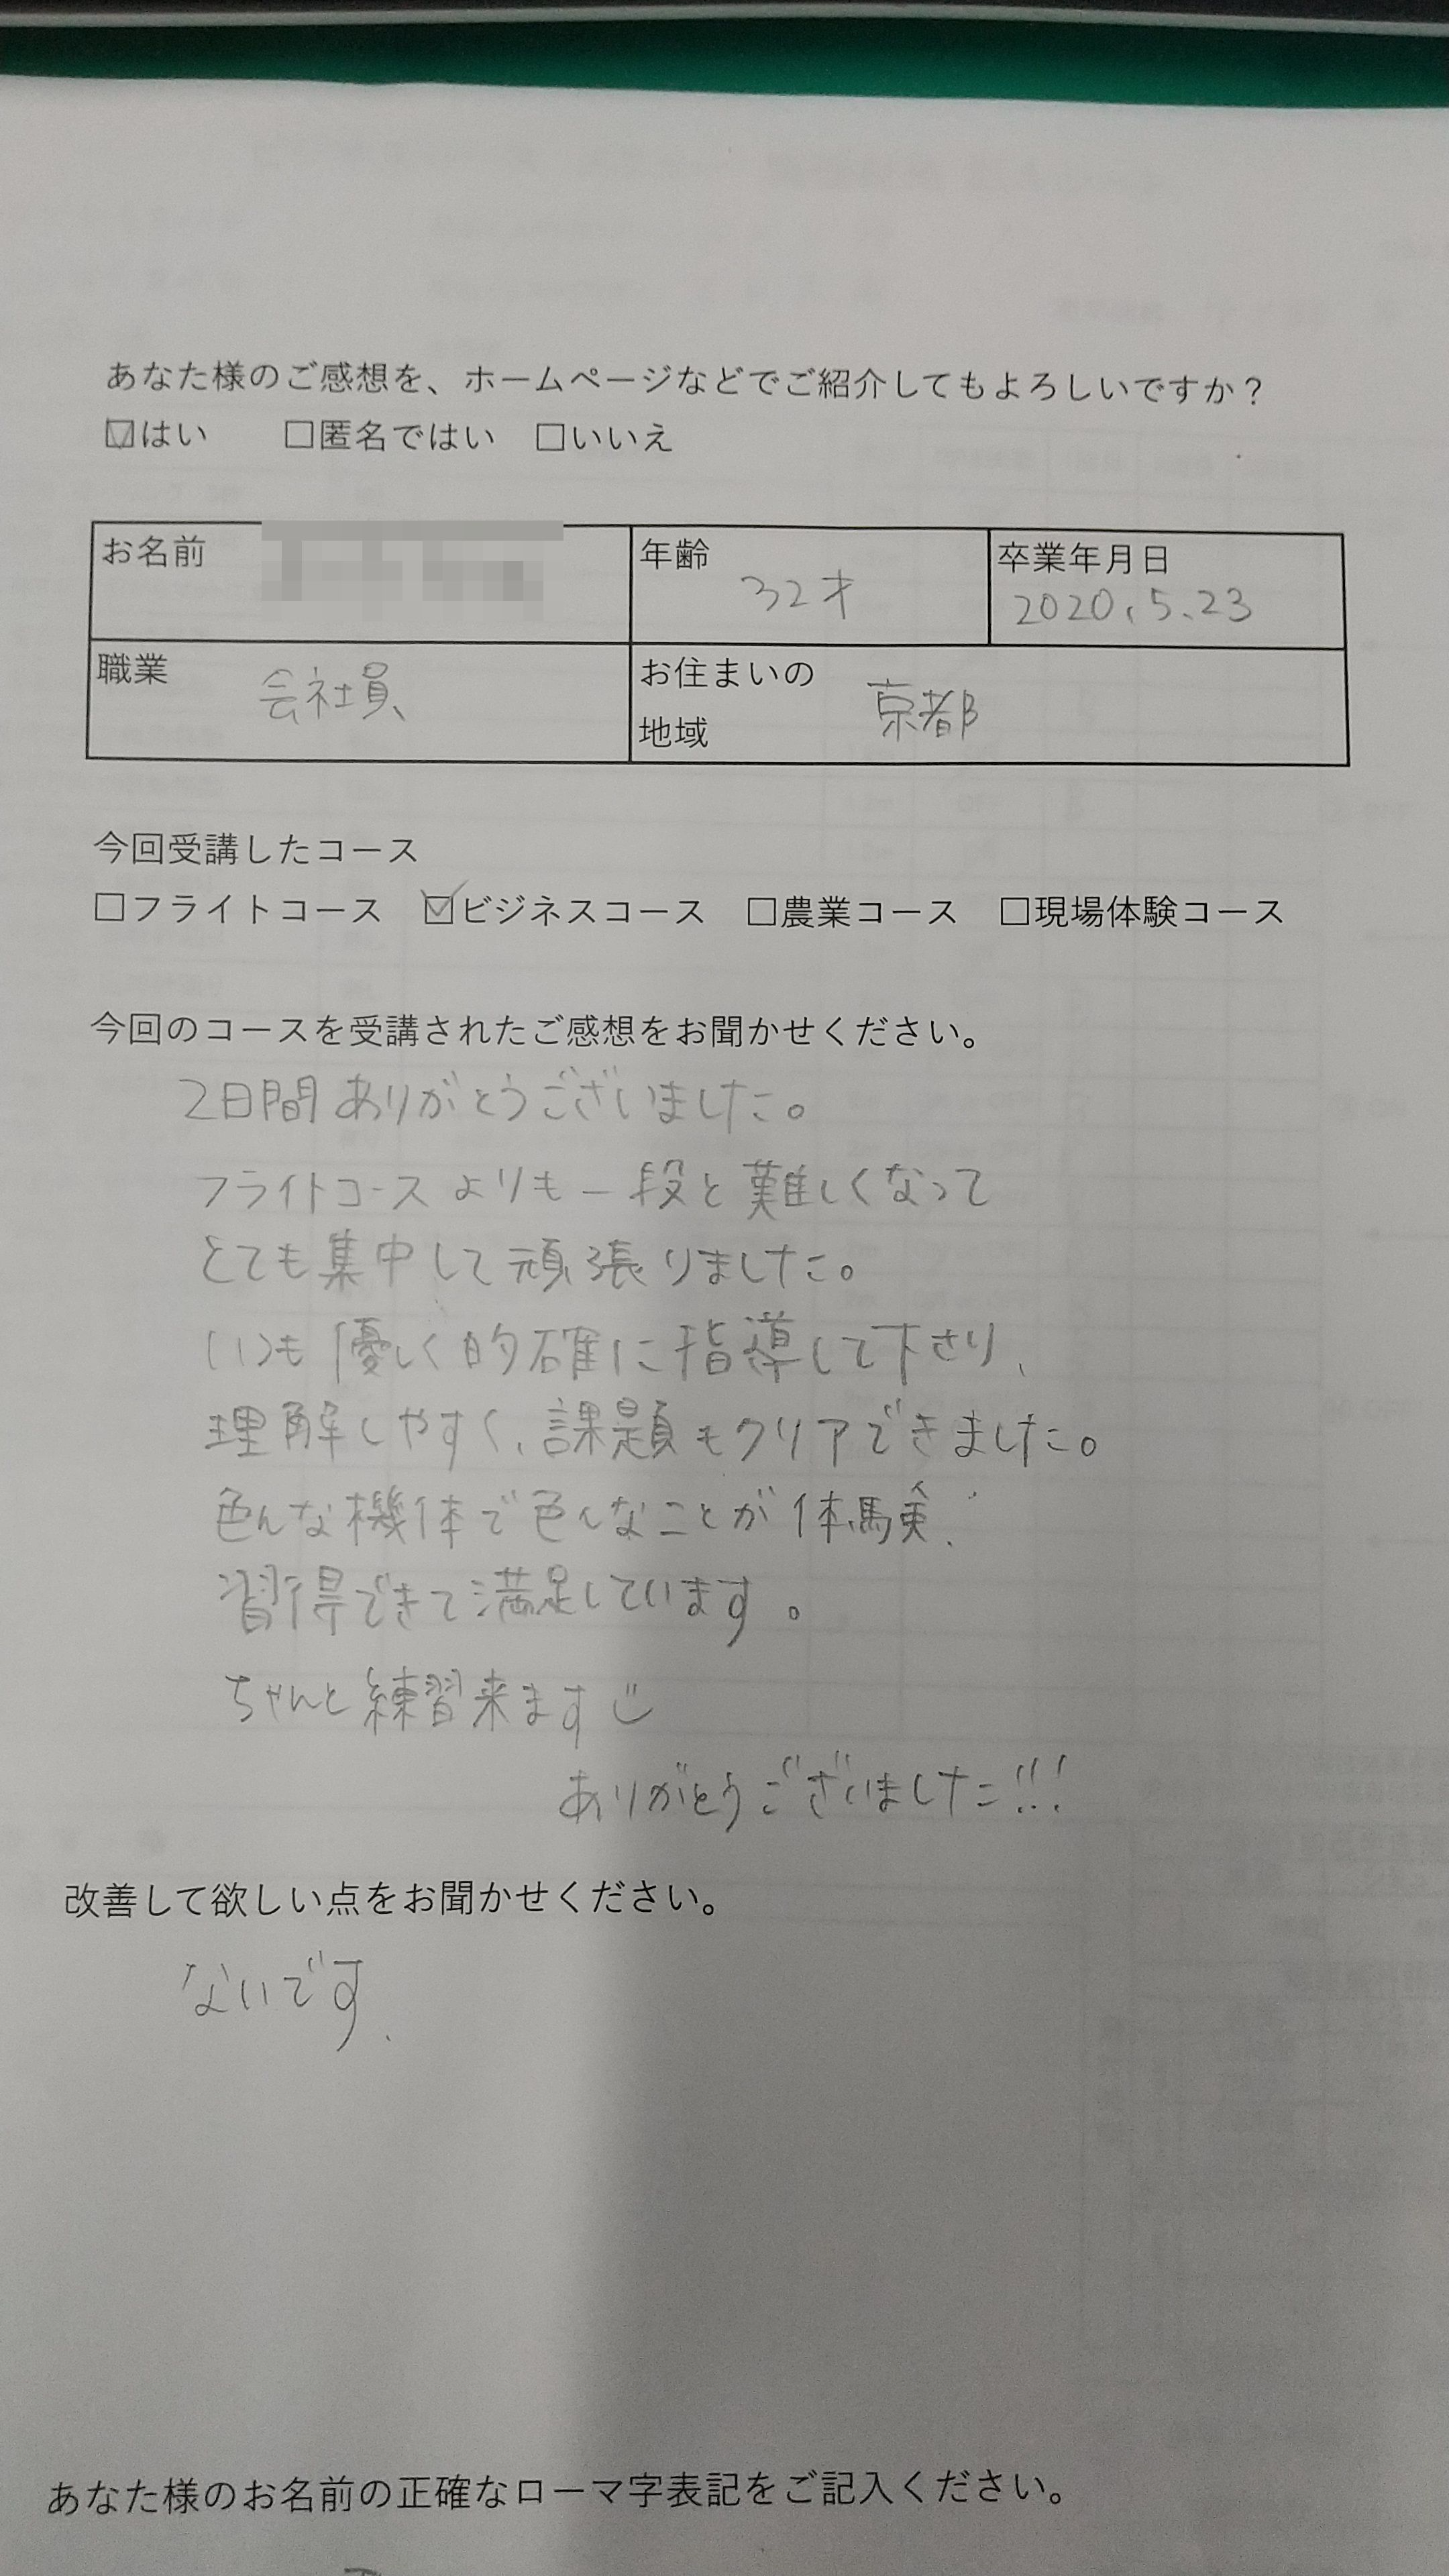 あなた様のご感想を、ホームページなどでご紹介してもよろしいですか？
☑はい □匿名ではい □いいえ
お名前
年齢
32才
卒業年月日
2020.5.23
職業
会社員
お住まいの
地域
京都
今回受講したコース
□フライトコース ☑ビジネスコース □農業コース □現場体験コース
今回のコースを受講されたご感想をお聞かせください。
2日間ありがとうございました。
フライトコースよりも一段と難しくなって
とても集中して頑張りました。
いつも優しく的確に指導して下さり、
理解しやすく、課題もクリアできました。
色んな機体で色んなことが体験、
習得できて満足しています。
ちゃんと練習来ます
ありがとうございました!!!
改善して欲しい点をお聞かせください。
ないです、
あなた様のお名前の正確なローマ字表記をご記入ください。